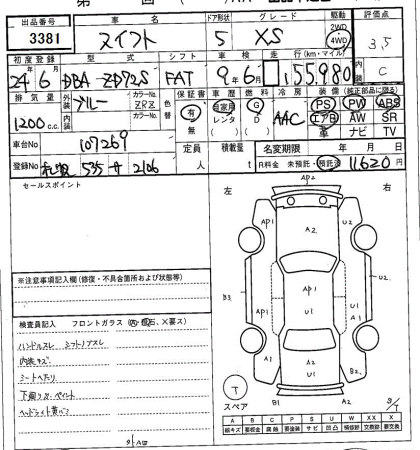 出品番号 車名 ドア形状 グレード 駆動 評価点
3381 スイフト 5 XS 2WD 4WD 3.5
初度登録 型式 シフト 車検 走行(km・マイル) 内装
24年6月 DBA-ZD72S FAT 9年6月 155,980 C
排気量 外装 カラーNo. 色替 保証書 車歴 燃料 冷房 装備(純正部品に限る)
1200c.c. ブルー ZRZ 有 自家用 G AAC PS PW ABS
内装 カラーNo. レンタ D エアB AW SR
無 ( ) ( ) 車 ナビ TV
車台No 107269 定員 積載量 名変期限 年 月 日
登録No 札幌 535 サ 2106 人 t R料金 未預託・預託済 11620円
セールスポイント
左 右
AP2
AP1 A2 U2
U2
B3 AP1 AP1 U1 U1
A1 A1
A2 B2
U2
B1 A2
※注意事項記入欄(修復・不具合箇所および状態等)
検査員記入 フロントガラス
ハンドルスレ シフトノブスレ
内装キズ
シートヘタリ
下廻りサビ・ペイント
ヘッドライト黄バミ
T
スペア
A B C P S U W X XX
線キズ 要板金 腐蝕 要塗装 サビ 凹凸 補修跡 要交換